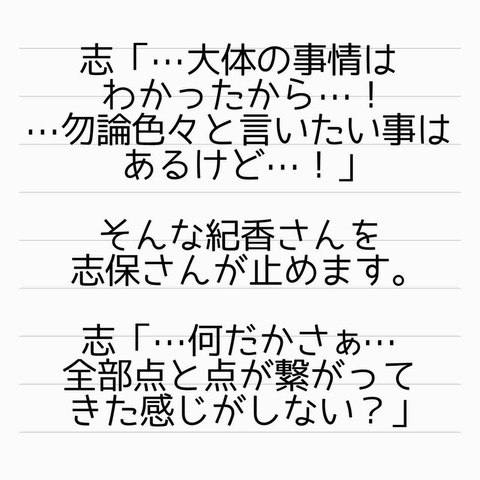 志「…大体の事情は
わかったから…！
…勿論色々と言いたい事は
あるけど…！」
そんな紀香さんを
志保さんが止めます。
志「…何だかさぁ…
全部点と点が繋がって
きた感じがしない？」